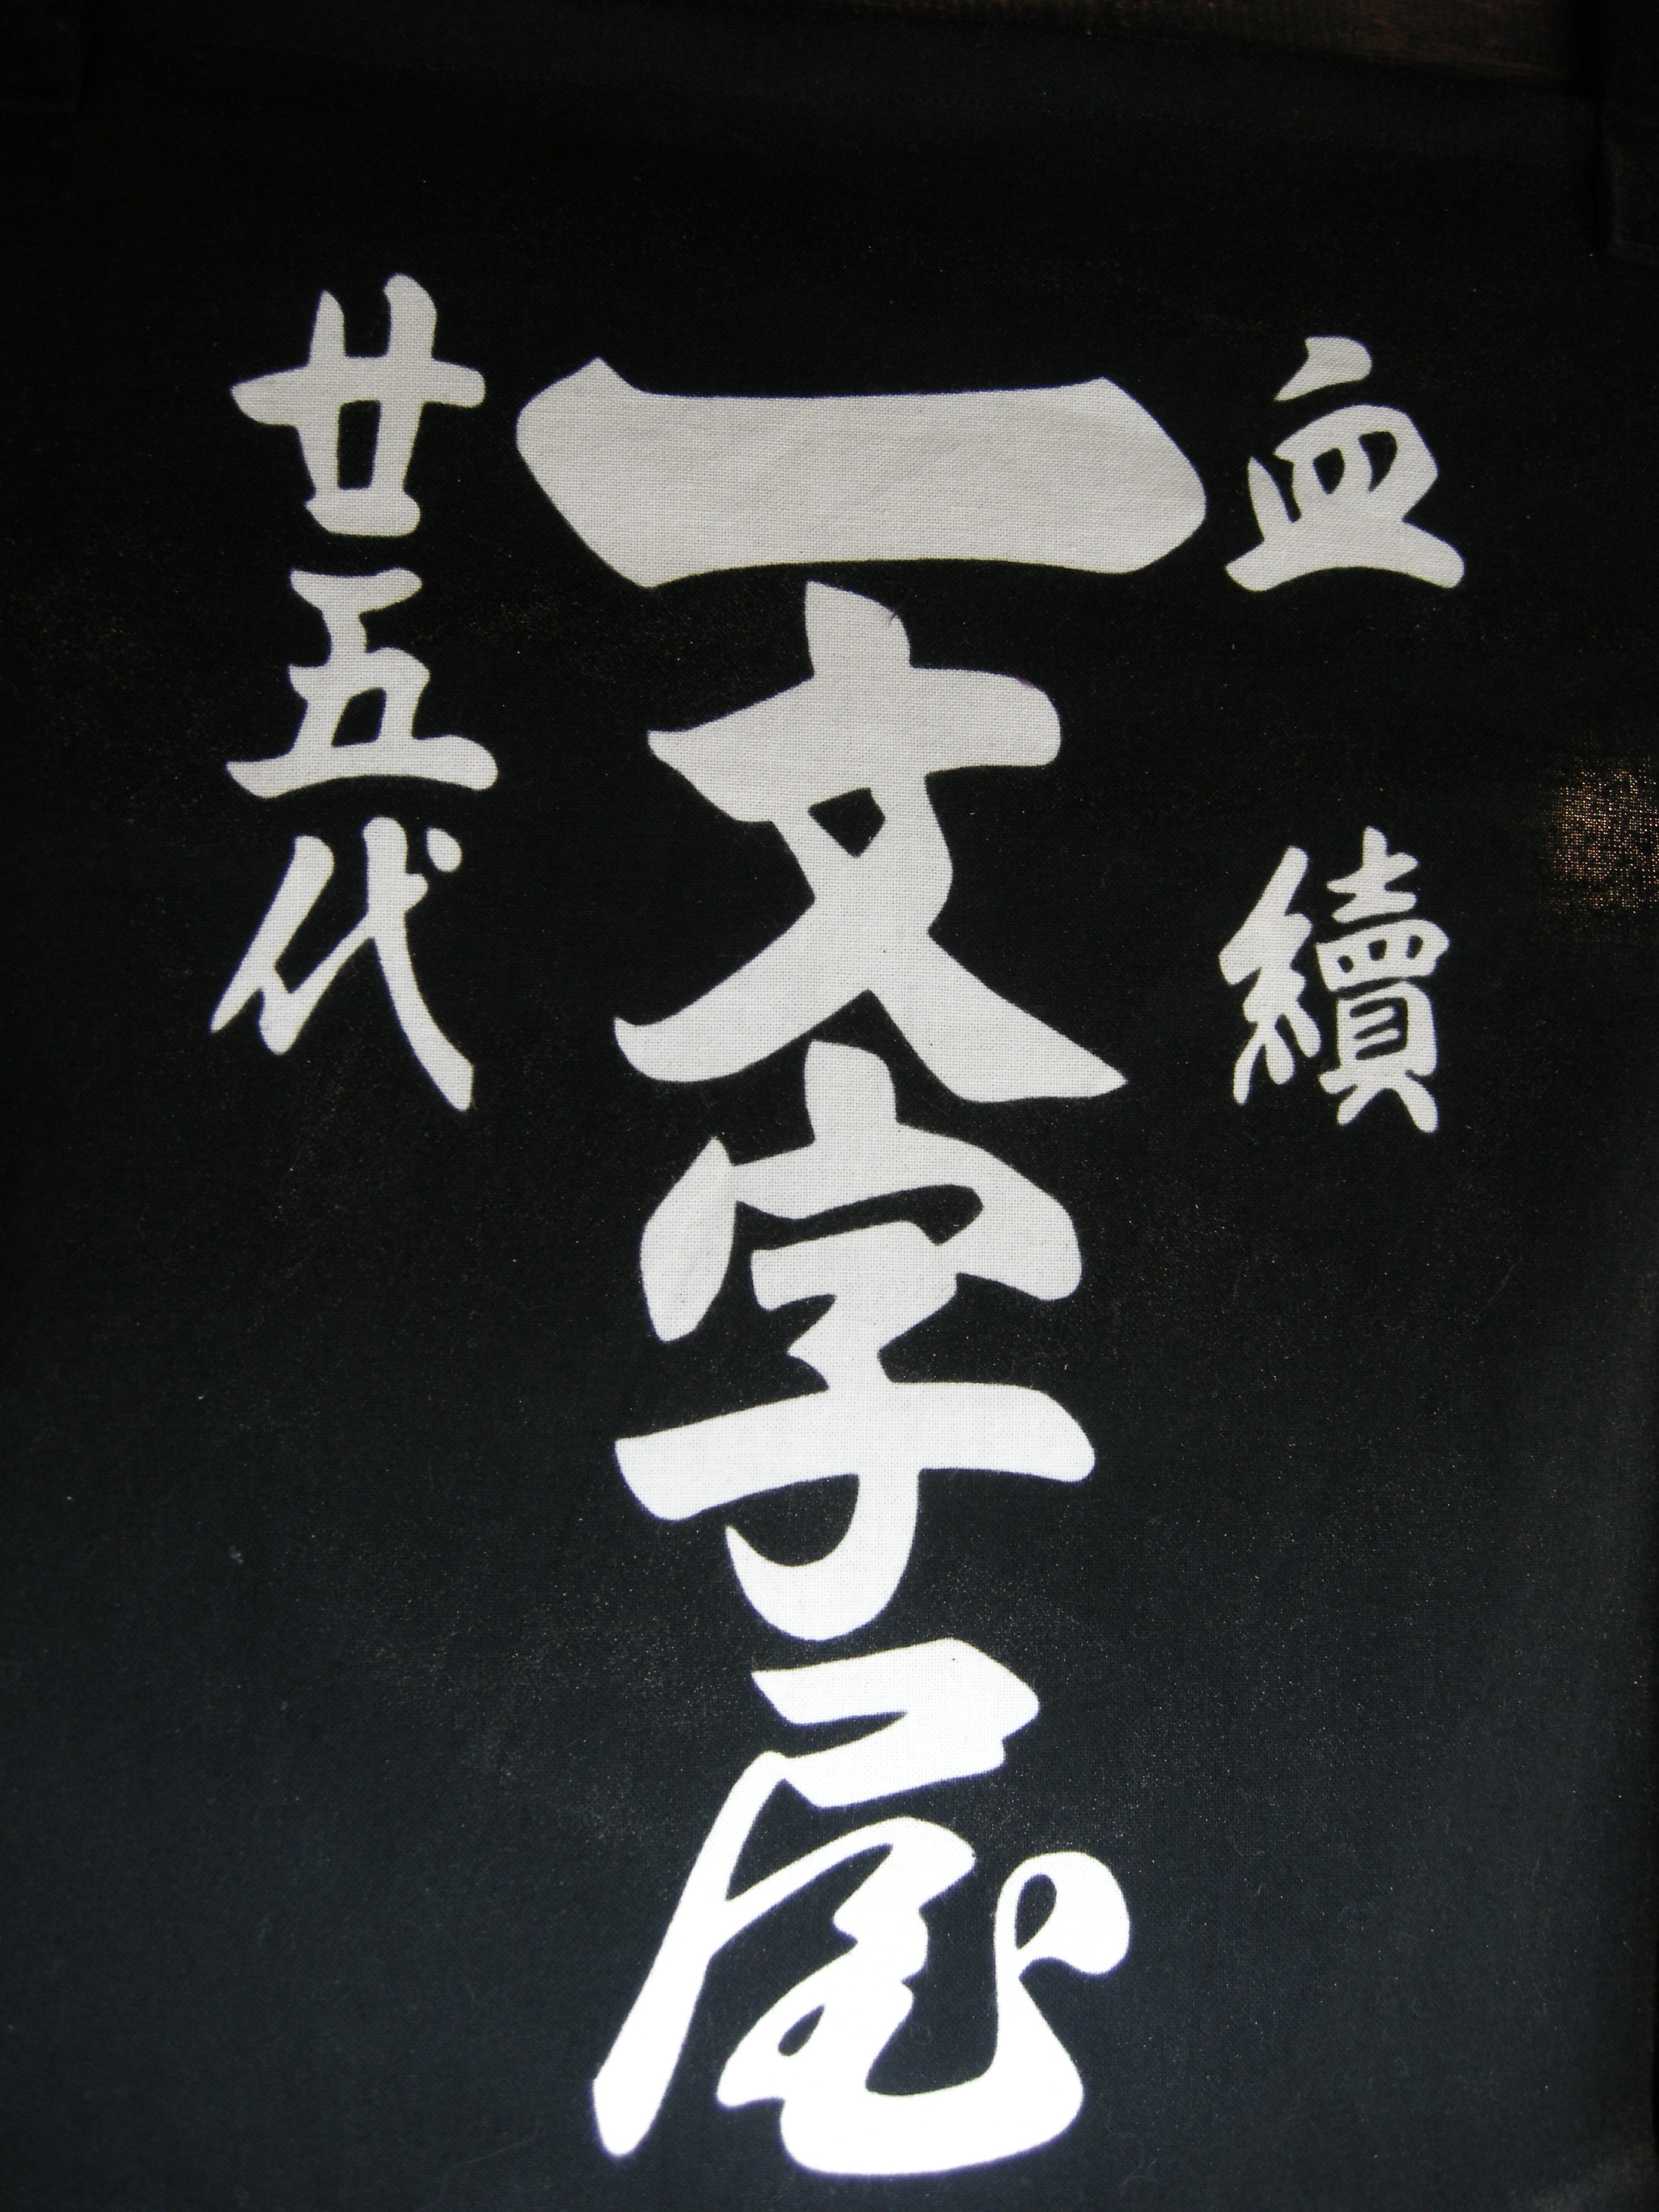 血續
一文字屋
廿五代